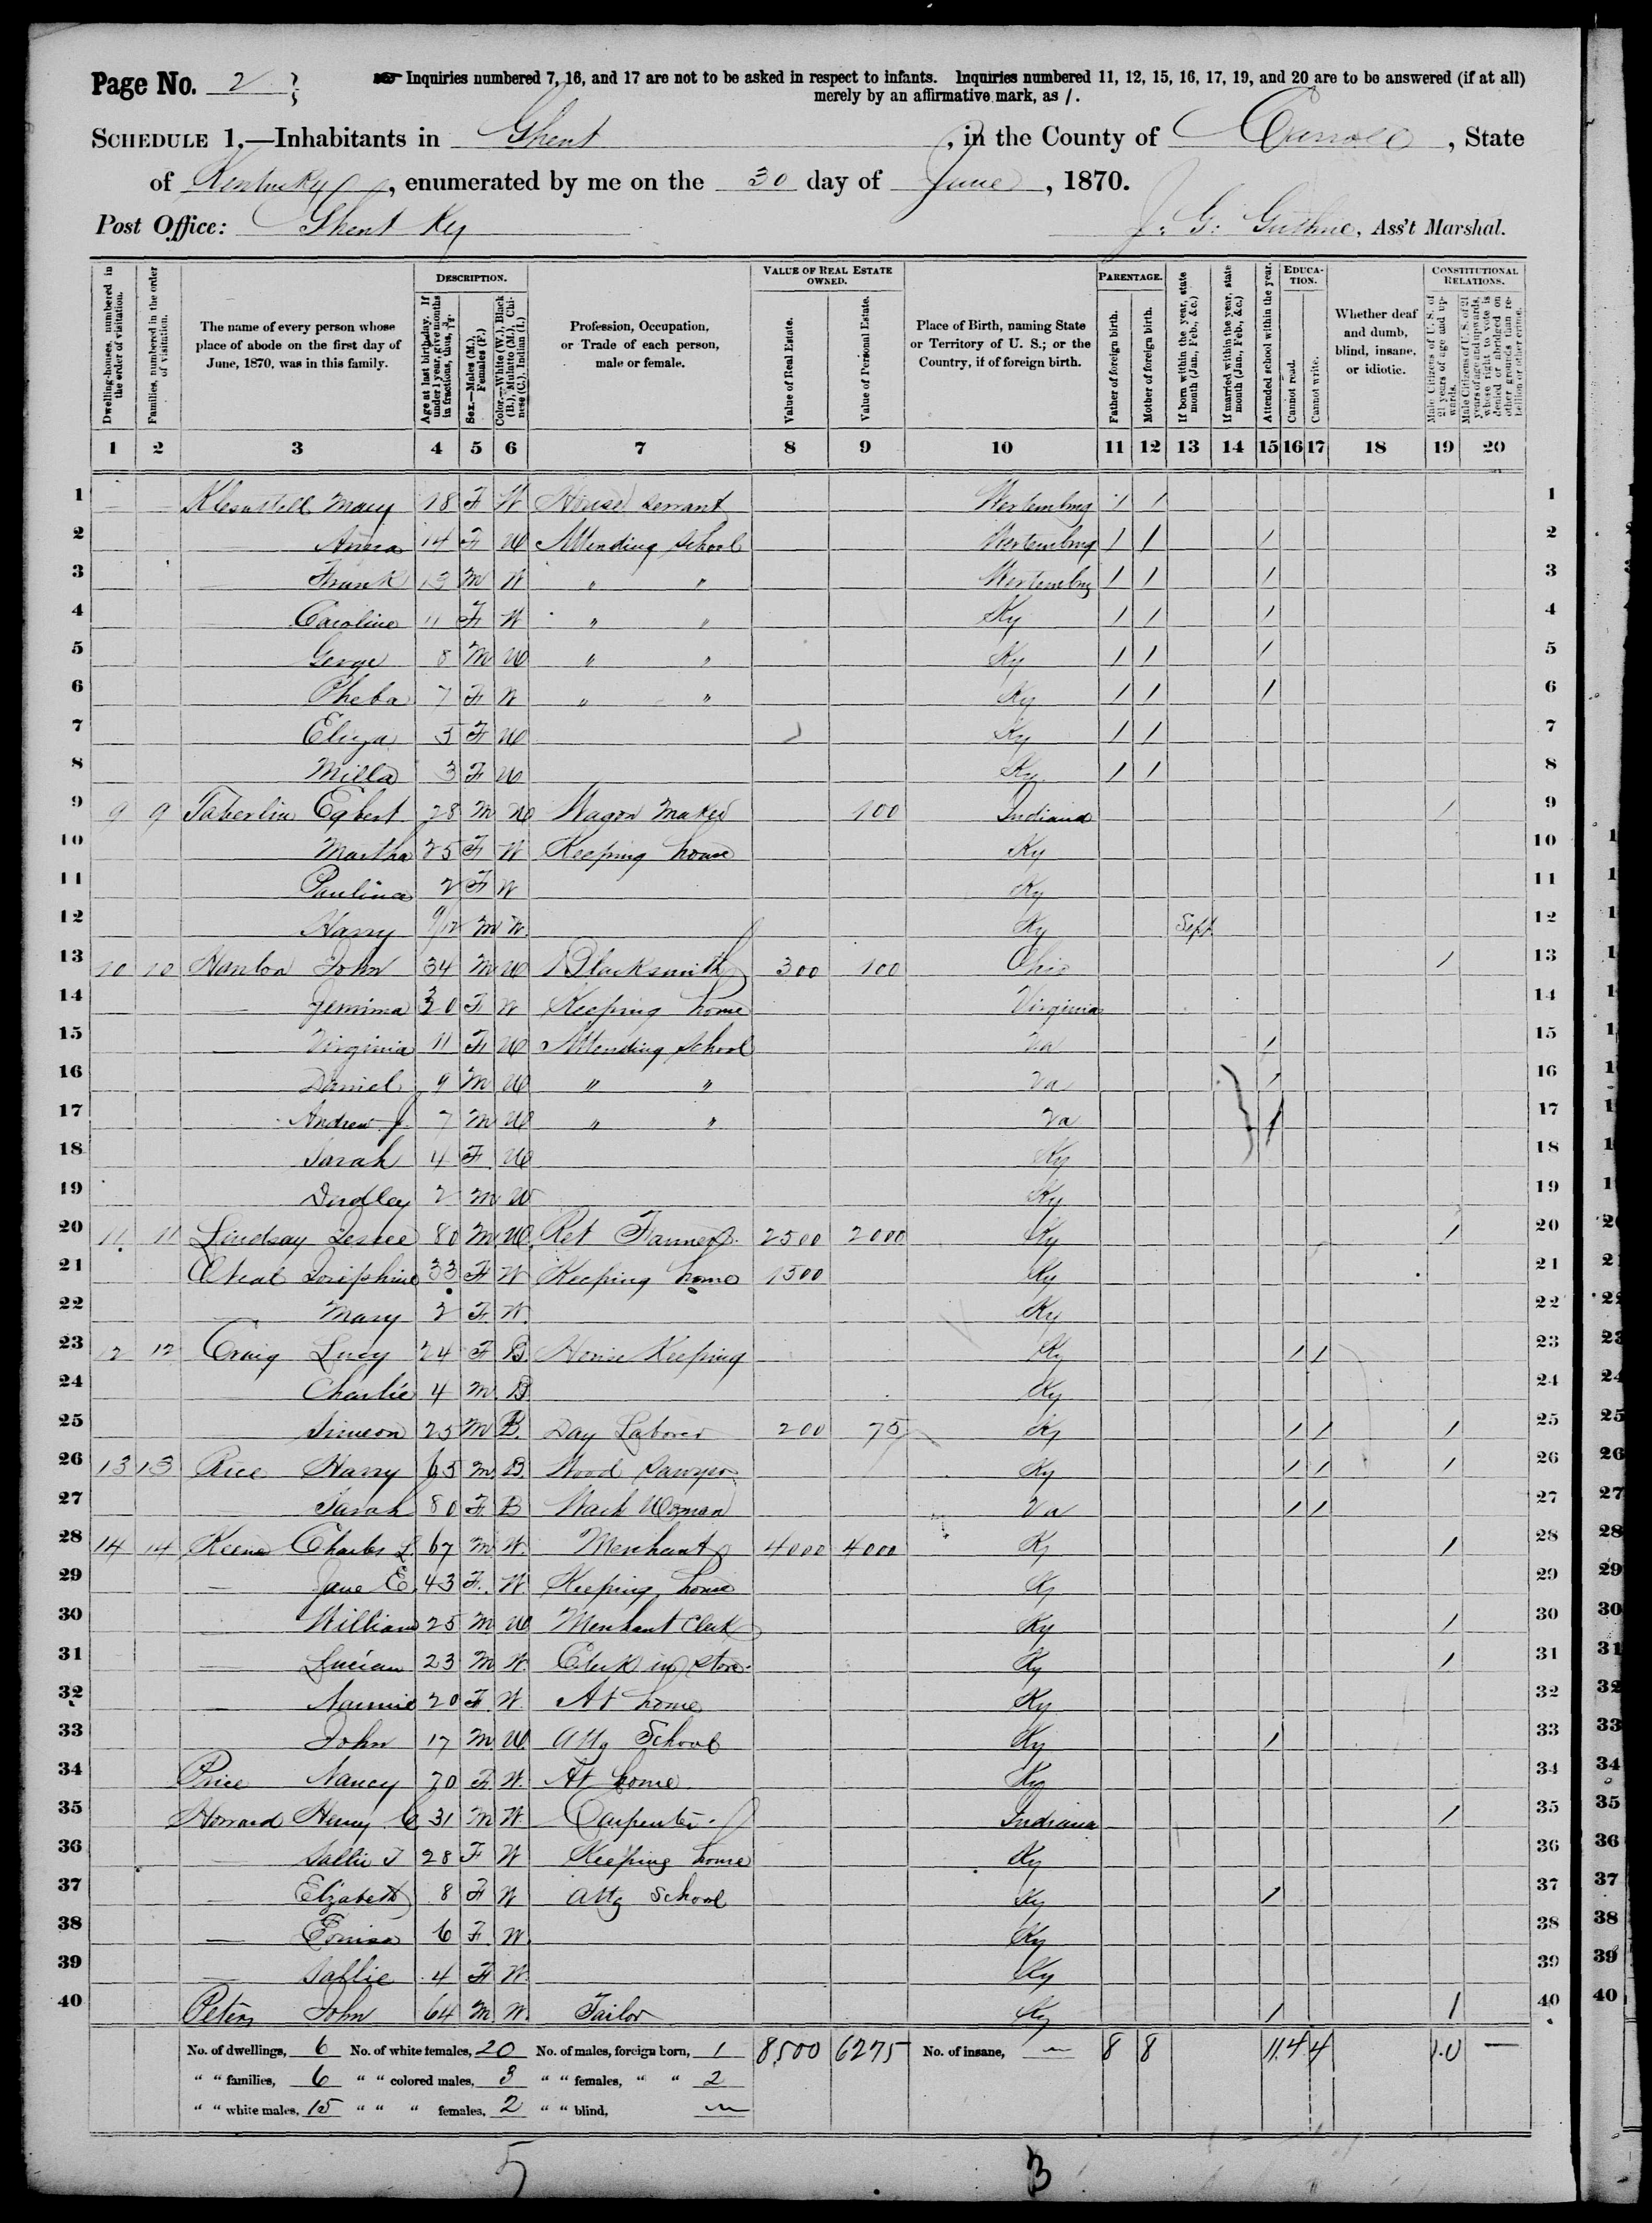 Page No. 2
Inquiries numbered 7, 16, and 17 are not to be asked in respect to infants. Inquiries numbered 11, 12, 15, 16, 17, 19, and 20 are to be answered (if at all)
merely by an affirmative mark, as /.
SCHEDULE 1.—Inhabitants in Ghent, in the County of Carroll, State
of Kentucky, enumerated by me on the 30 day of June, 1870.
Post Office: Ghent Ky J. G. Guthrie, Ass't Marshal.
Dwelling-houses, numbered in the order of visitation.
Families, numbered in the order of visitation.
The name of every person whose place of abode on the first day of June, 1870, was in this family.
DESCRIPTION.
Age at last birthday. If under 1 year, give months in fractions, thus, 3/12.
Sex.—Males (M.), Females (F.)
Color.—White (W.), Black (B.), Mulatto (M.), Chinese (C.), Indian (I.)
Profession, Occupation, or Trade of each person, male or female.
VALUE OF REAL ESTATE OWNED.
Value of Real Estate.
Value of Personal Estate.
Place of Birth, naming State or Territory of U. S.; or the Country, if of foreign birth.
PARENTAGE.
Father of foreign birth.
Mother of foreign birth.
If born within the year, state month (Jan., Feb., &c.)
If married within the year, state month (Jan., Feb., &c.)
Attended school within the year.
EDUCATION.
Cannot read.
Cannot write.
Whether deaf and dumb, blind, insane, or idiotic.
CONSTITUTIONAL RELATIONS.
Male Citizens of U. S. of 21 years of age and upwards.
Male Citizens of U. S. of 21 years of age and upwards, whose right to vote is denied or abridged on other grounds than rebellion or other crime.
1 2 3 4 5 6 7 8 9 10 11 12 13 14 15 16 17 18 19 20
1 Mary 18 F W House Servant Wertemburg / / 1
2 — Anna 14 F W Attending School Wertemburg / / / 2
3 — Frank 13 M W " " Wertemburg / / / 3
4 — Caroline 11 F W " " Ky / / / 4
5 — George 8 M W " " Ky / / / 5
6 — Pheba 7 F W " " Ky / / / 6
7 Eliza 5 F W Ky / / 7
8 Milla 3 F W Ky / / 8
9 9 9 Taberlin Egbert 28 M W Wagon Maker 100 Indiana / 9
10 Martha 25 F W Keeping house Ky 10
11 Paulina 2 F W Ky 11
12 Harry 9/12 M W. Ky Sept 12
13 10 10 Hanlon John 34 M W Blacksmith 300 100 Ohio / 13
14 — Jemima 30 F W Keeping home Virginia 14
15 — Virginia 11 F W Attending School Va / 15
16 Daniel 9 M W " " Va / 16
17 Andrew J. 7 M W " " Va / 17
18 Sarah 4 F W Ky 18
19 Dudley 2 M W Ky 19
20 11 11 Lindsay Jessee 80 M W. Ret Farmer 2500 2000 Ky / 20
21 ONeal Josephine 33 F W Keeping home 1500 Ky 21
22 Mary 2 F. W. Ky 22
23 12 12 Craig Lucy 24 F B. House Keeping Ky / / 23
24 — Charlie 4 M. B Ky 24
25 — Simeon 25 M B. Day Laborer 200 75 Ky / / / 25
26 13 13 Rice Harry 65 M. B. Wood Sawyer Ky / / / 26
27 — Sarah 80 F. B Wash Woman Va / / 27
28 14 14 Keene Charles L. 67 M W. Merchant 4000 4000 Ky / 28
29 — Jane E. 43 F. W. Keeping home Ky 29
30 — William 25 M W Merchant Clerk Ky / 30
31 — Lucian 23 M W. Clerk in Store Ky / 31
32 — Nannie 20 F. W. At home Ky 32
33 — John 17 M W. Attg School Ky / 33
34 Price Nancy 70 F. W. At home Ky 34
35 Howard Henry C 31 M W. Carpenter Indiana / 35
36 — Sallie T 28 F W Keeping home Ky 36
37 — Elizabeth 8 F W Attg School Ky / 37
38 — Louisa 6 F. W. Ky 38
39 — Sallie 4 F W. Ky 39
40 Peters John 64 M W. Tailor Ky / / 40
No. of dwellings, 6 No. of white females, 20 No. of males, foreign born, 1 8,500 6275 No. of insane, — 8 8 11 4 4 10 —
" " families, 6 " " colored males, 3 " " females, " " 2
" " white males, 15 " " " females, 2 " " blind, —
5 3